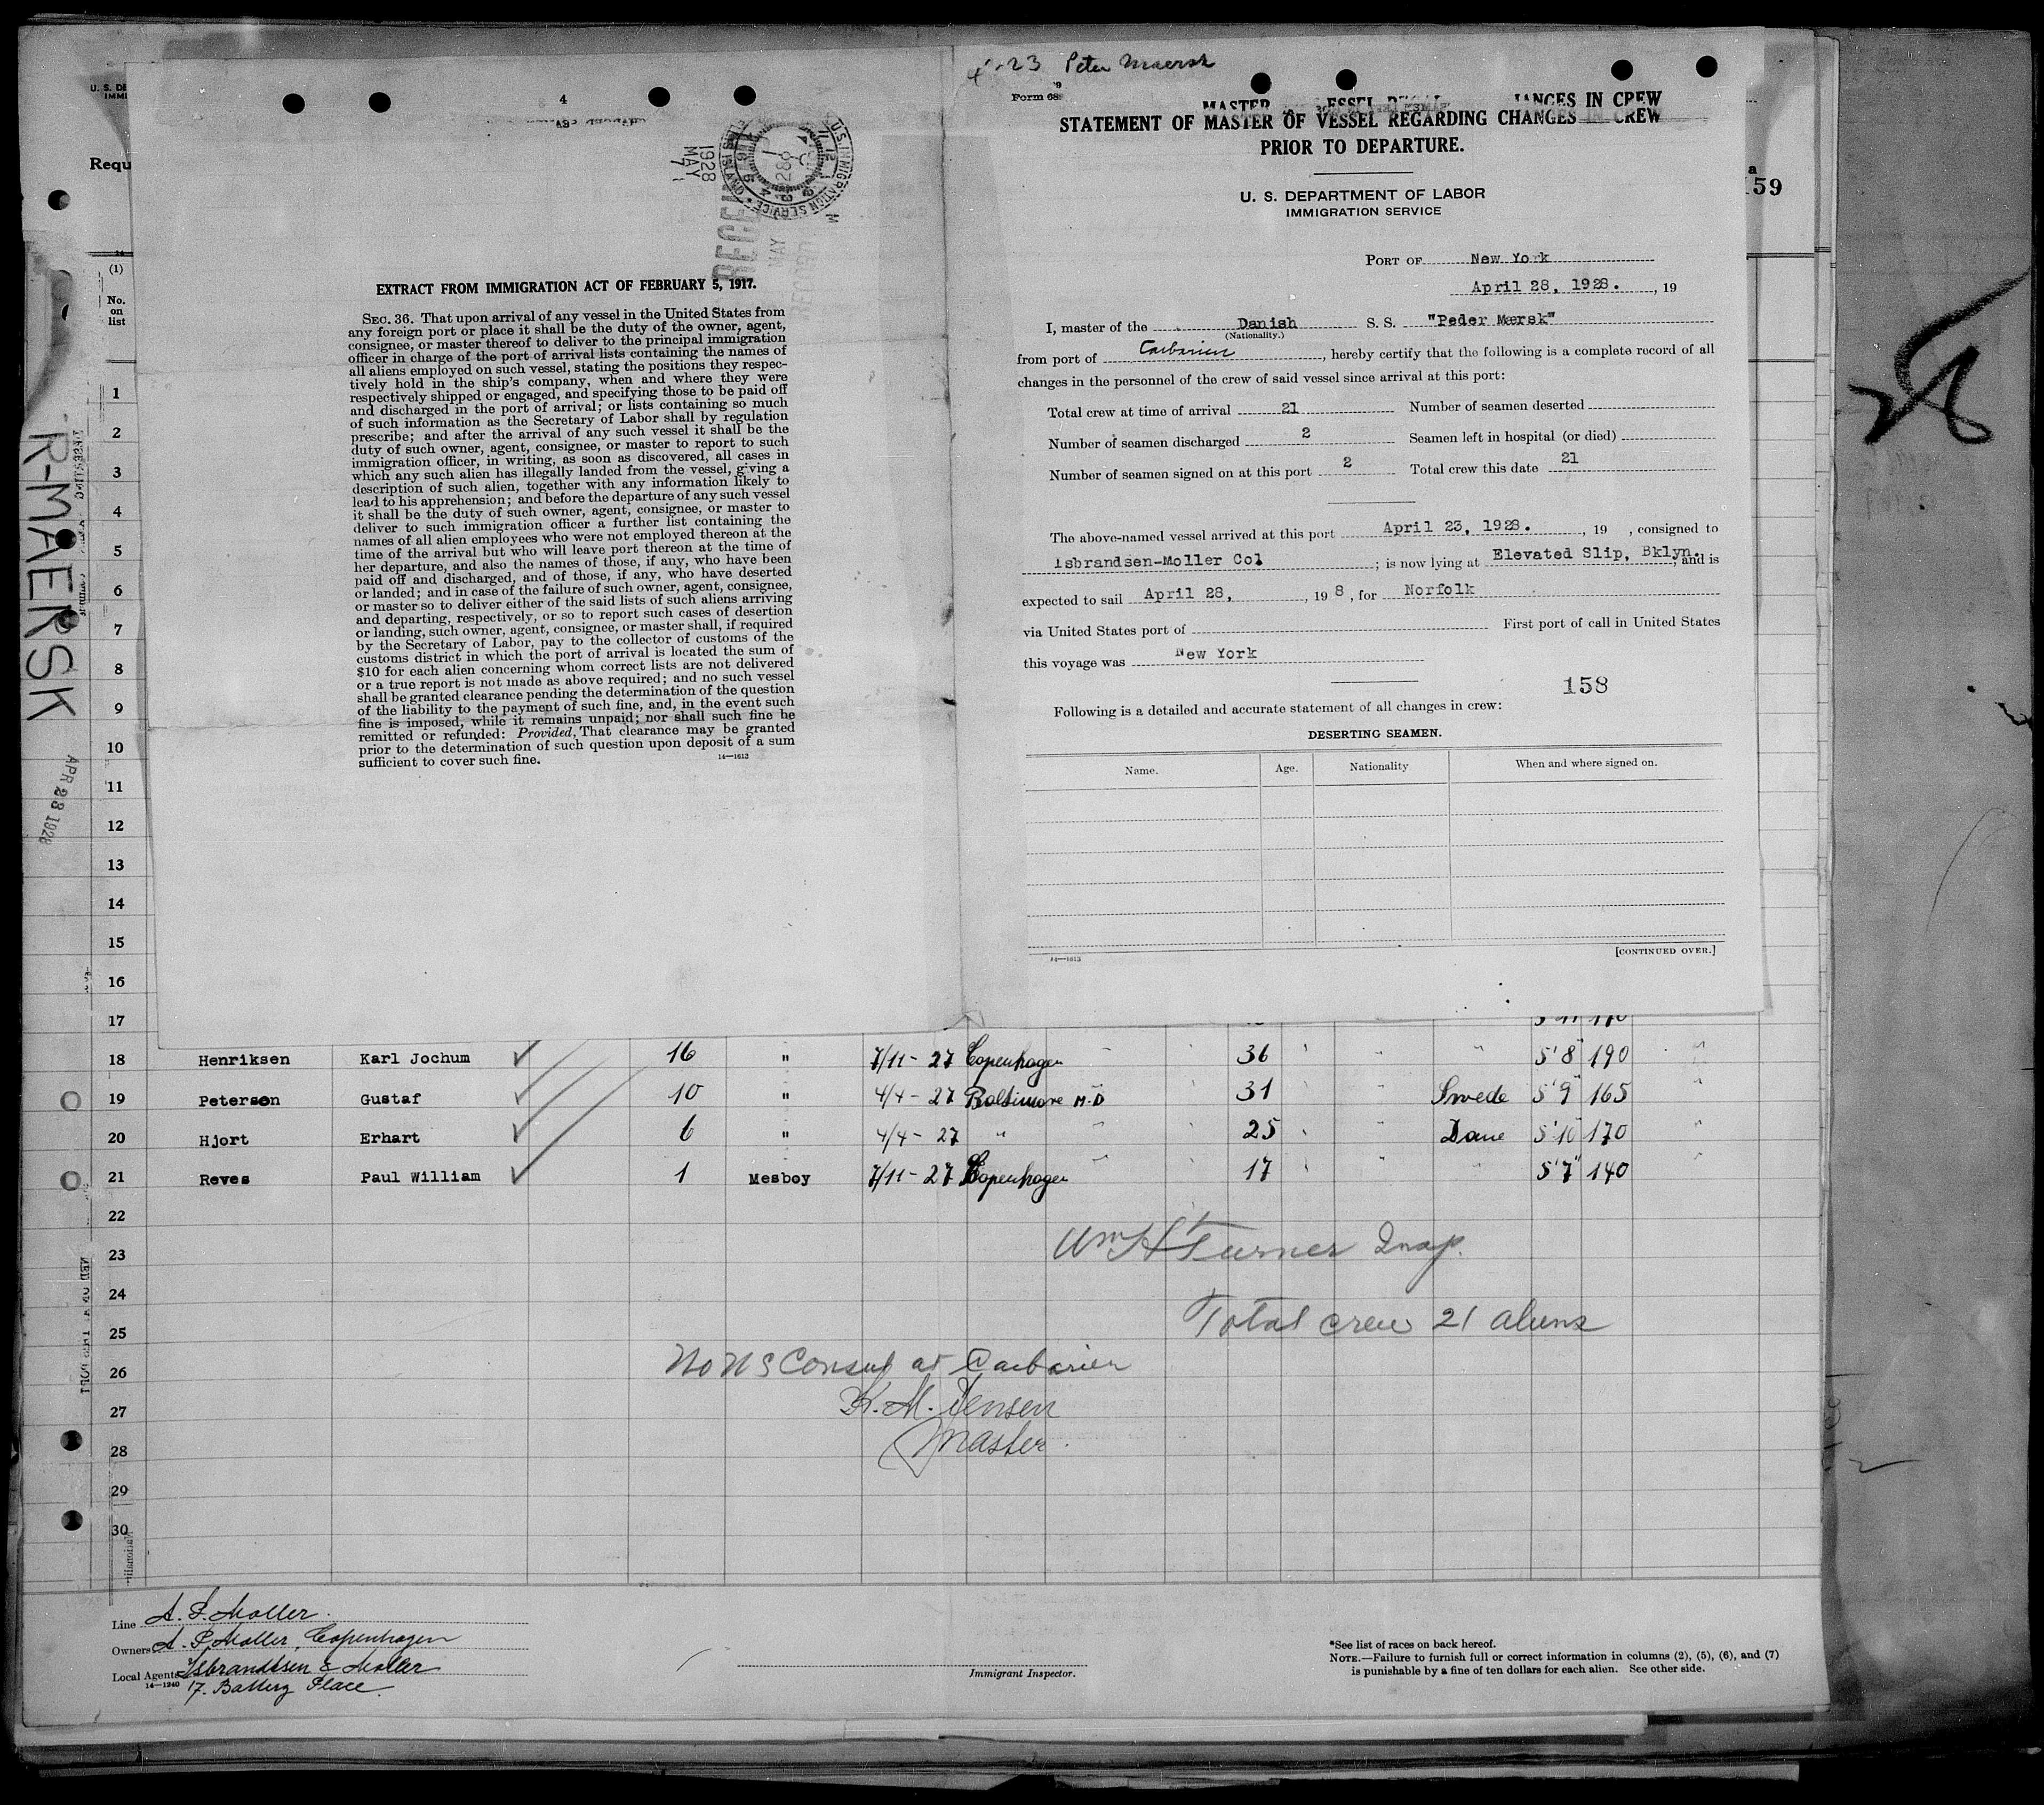 4-23 Peter Maersk
4
Form 689
STATEMENT OF MASTER OF VESSEL REGARDING CHANGES IN CREW
PRIOR TO DEPARTURE.
U. S. DEPARTMENT OF LABOR
IMMIGRATION SERVICE
PORT OF New York
April 28, 1928. , 19
I, master of the Danish S. S. "Peder Mærsk"
(Nationality.)
from port of Caibarien , hereby certify that the following is a complete record of all
changes in the personnel of the crew of said vessel since arrival at this port:
Total crew at time of arrival 21 Number of seamen deserted
Number of seamen discharged 2 Seamen left in hospital (or died)
Number of seamen signed on at this port 2 Total crew this date 21
The above-named vessel arrived at this port April 23, 1928. , 19 , consigned to
Isbrandsen-Moller Col ; is now lying at Elevated Slip, Bklyn. ; and is
expected to sail April 28, , 19 8 , for Norfolk
via United States port of First port of call in United States
this voyage was New York
158
Following is a detailed and accurate statement of all changes in crew:
DESERTING SEAMEN.
Name. Age. Nationality When and where signed on.
14—1613
[CONTINUED OVER.]
RECEIVED
1928
MAY
7
U.S. IMMIGRATION SERVICE
EXTRACT FROM IMMIGRATION ACT OF FEBRUARY 5, 1917.
SEC. 36. That upon arrival of any vessel in the United States from
any foreign port or place it shall be the duty of the owner, agent,
consignee, or master thereof to deliver to the principal immigration
officer in charge of the port of arrival lists containing the names of
all aliens employed on such vessel, stating the positions they respec-
tively hold in the ship's company, when and where they were
respectively shipped or engaged, and specifying those to be paid off
and discharged in the port of arrival; or lists containing so much
of such information as the Secretary of Labor shall by regulation
prescribe; and after the arrival of any such vessel it shall be the
duty of such owner, agent, consignee, or master to report to such
immigration officer, in writing, as soon as discovered, all cases in
which any such alien has illegally landed from the vessel, giving a
description of such alien, together with any information likely to
lead to his apprehension; and before the departure of any such vessel
it shall be the duty of such owner, agent, consignee, or master to
deliver to such immigration officer a further list containing the
names of all alien employees who were not employed thereon at the
time of the arrival but who will leave port thereon at the time of
her departure, and also the names of those, if any, who have been
paid off and discharged, and of those, if any, who have deserted
or landed; and in case of the failure of such owner, agent, consignee,
or master so to deliver either of the said lists of such aliens arriving
and departing, respectively, or so to report such cases of desertion
or landing, such owner, agent, consignee, or master shall, if required
by the Secretary of Labor, pay to the collector of customs of the
customs district in which the port of arrival is located the sum of
$10 for each alien concerning whom correct lists are not delivered
or a true report is not made as above required; and no such vessel
shall be granted clearance pending the determination of the question
of the liability to the payment of such fine, and, in the event such
fine is imposed, while it remains unpaid; nor shall such fine be
remitted or refunded: Provided, That clearance may be granted
prior to the determination of such question upon deposit of a sum
sufficient to cover such fine.
14—1613
Requ
59
R-MAERSK
APR 28 1928
(1)
No.
on
list
1
2
3
4
5
6
7
8
9
10
11
12
13
14
15
16
17
18 Henriksen Karl Jochum 16 " 7/11-27 Copenhagen 36 " 5'8" 190 "
19 Petersen Gustaf 10 " 4/4-27 Baltimore M.D 31 " Swede 5'9" 165 "
20 Hjort Erhart 6 " 4/4-27 " 25 " Dane 5'10" 170 "
21 Reves Paul William 1 Mesboy 7/11-27 Copenhagen 17 " " 5'7" 140 "
22
23 Wm H Turner Insp.
24
25 Total crew 21 aliens
26 No US Consul at Caibarien
27 K. M. Jensen
28 Master.
29
30
Line A. P. Moller.
Owners A. P. Moller, Copenhagen
Local Agents Isbrandtsen & Moller
14—1240 17. Battery Place.
Immigrant Inspector.
*See list of races on back hereof.
NOTE.—Failure to furnish full or correct information in columns (2), (5), (6), and (7)
is punishable by a fine of ten dollars for each alien. See other side.